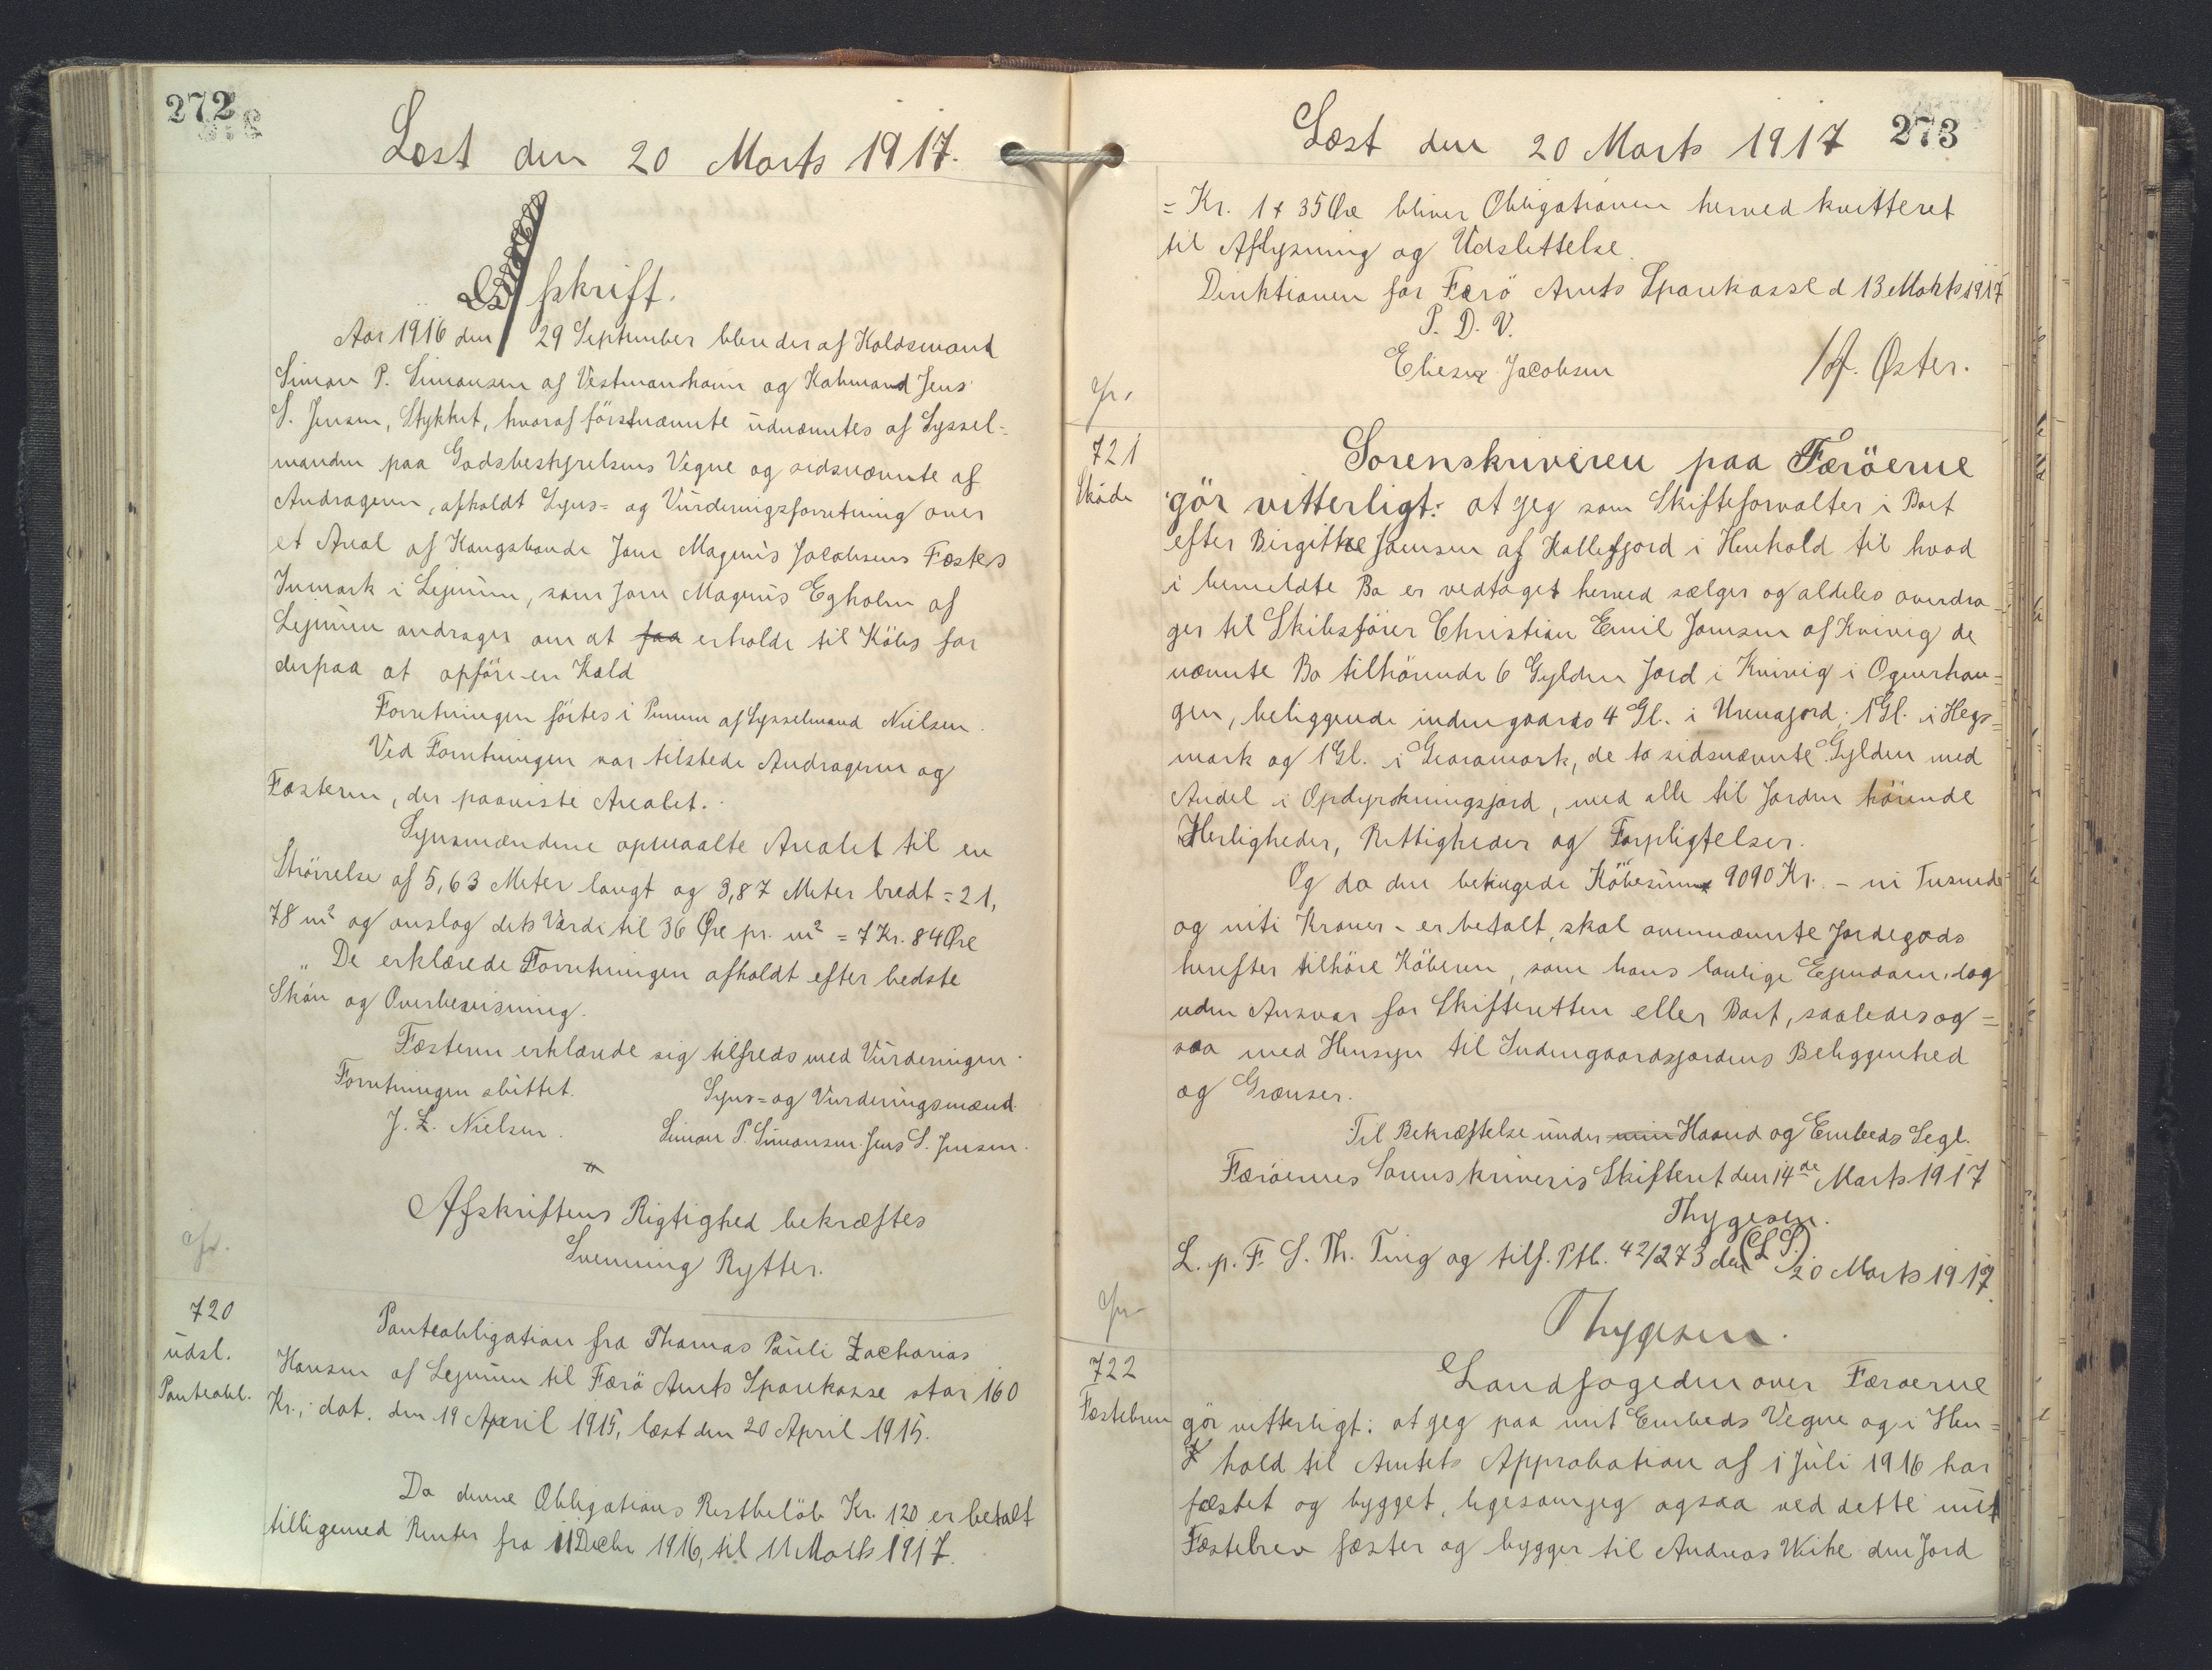 272
Læst den 20 Marts 1917.
fskrift.
Aar 1916 den 29 September blev der af Holdsmand
Simon P. Simonsen af Vestmanhavn og Købmand Jens
S. Jensen, Stykket, hvoraf förstnævnte udnævntes af Syssel=
manden paa Godsbestyrelsens Vegne og sidsnævnte af
Andrageren, afholdt Syns= og Vurderingsforretning over
et Areal af Kongsbonde Jone Magnus Jacobsens Fæstes
Inmark i Lejnum, som Jone Magnus Egholm af
Lejnum andrager om at faa erholde til Köbs for
derpaa at opföre en Kald
Forretningen förtes i Pennen af Sysselmand Nielsen.
Ved Forretningen var tilstede Andrageren og
Fæsteren, der paaviste Arealet.
Synsmændene opmaalte Arealet til en
Strörrelse af 5,63 Meter langt og 3,87 Meter bredt = 21,
78 m² og anslog dets Værdi til 36 Øre pr. m² = 7 Kr. 84 Øre
De erklærede Forretningen afholdt efter bedste
Skön og Overbevisning.
Fæsteren erklærede sig tilfreds med Vurderingen.
Forretningen sluttet.
Syns= og Vurderingsmænd.
J. Z. Nielsen.
Simon P. Simonsen. Jens S. Jensen.
Afskriftens Rigtighed bekræftes
Svenning Rytter.
720
udsl.
Panteobl.
Panteobligation fra Thomas Pauli Zacharias
Hansen af Lejnum til Færö Amts Sparekasse stor 160
Kr., dat. den 19 April 1915, læst den 20 April 1915.
Da denne Obligations Restbelöb Kr. 120 er betalt
tilligemed Renter fra 11 Decbr 1916, til 11 Marts 1917.
Læst den 20 Marts 1917
273
= Kr. 1 + 35 Øre bliver Obligationen herved kvitteret
til Aflysning og Udslettelse.
Direktionen for Færö Amts Sparekasse d 13 Marts 1917
P. D. V.
Elieser Jacobsen
/ A. Øster.
721
Sköde
Sorenskriveren paa Færöerne
gör vitterligt: at jeg som Skifteforvalter i Boet
efter Birgitte Joensen af Kollefjord i Henhold til hvad
i bemeldte Bo er vedtaget herved sælger og aldeles overdra=
ger til Skibsförer Christian Emil Joensen af Kvivig de
nævnte Bo tilhörende 6 Gylden Jord i Kvivig i Ognerhau=
gen, beliggende indengaards 4 Gl. i Urenajord, 1 Gl. i Hegs=
mark og 1 Gl. i Gearamork, de to sidsnævnte Gylden med
Andel i Opdyrkningsjord, med alle til Jorden hörende
Herligheder, Rettigheder og Forpligtelser.
Og da den betingede Köbesum 9090 Kr. - ni Tusende
og niti Kroner - er betalt, skal ovennævnte Jordegods
herefter tilhöre Köberen, som hans lovlige Ejendom, dog
uden Ansvar for Skifteretten eller Boet, saaledes og=
saa med Hensyn til Indengaardsjordens Beliggenhed
og Grænser.
Til Bekræftelse under min Haand og Embeds Segl.
Færöernes Sorenskriveris Skifteret den 14de Marts 1917
Thygesen.
(L S.)
L. p. F. S. Th. Ting og tilf. Ptb. 42/273 den 20 Marts 1917.
Thygesen.
722
Fæstebrev
Landfogeden over Færöerne
gör vitterligt: at jeg paa mit Embeds Vegne og i Hen=
hold til Amtets Approbation af 1 Juli 1916 har
fæstet og bygget, ligesom jeg ogsaa ved dette mit
Fæstebrev fæster og bygger til Andreas Weihe den Jord